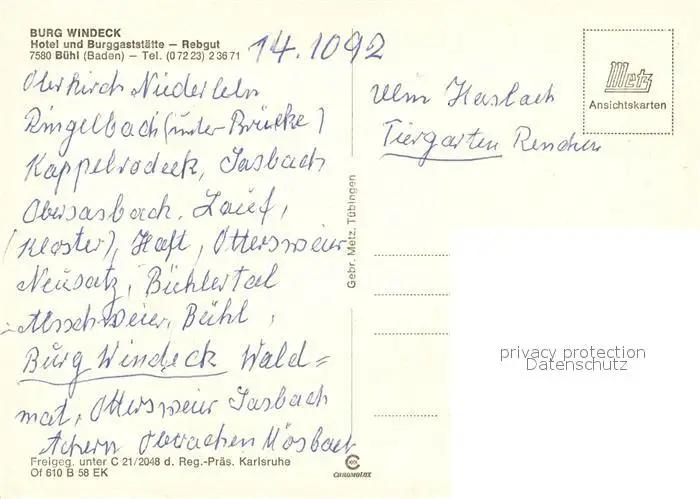 BURG WINDECK
Hotel und Burggaststätte — Rebgut
7580 Bühl (Baden) — Tel. (0 72 23) 2 36 71
14.1092
Oberkirch Niederlehn
Ringelbach (unter Brücke)
Kappelrodeck, Sasbach
Obersasbach, Lauf,
(Kloster), Haft, Ottersweier
Neusatz, Bühlertal
Altschweier, Bühl,
Burg Windeck Wald=
mat, Ottersweier Sasbach
Achern Oberachen Mösbach
Ulm Haslach
Tiergarten Renchen
Metz
Ansichtskarten
Gebr. Metz, Tübingen
privacy protection
Datenschutz
Freigeg. unter C 21/2048 d. Reg.-Präs. Karlsruhe
Of 610 B 58 EK
CHROMOLUX